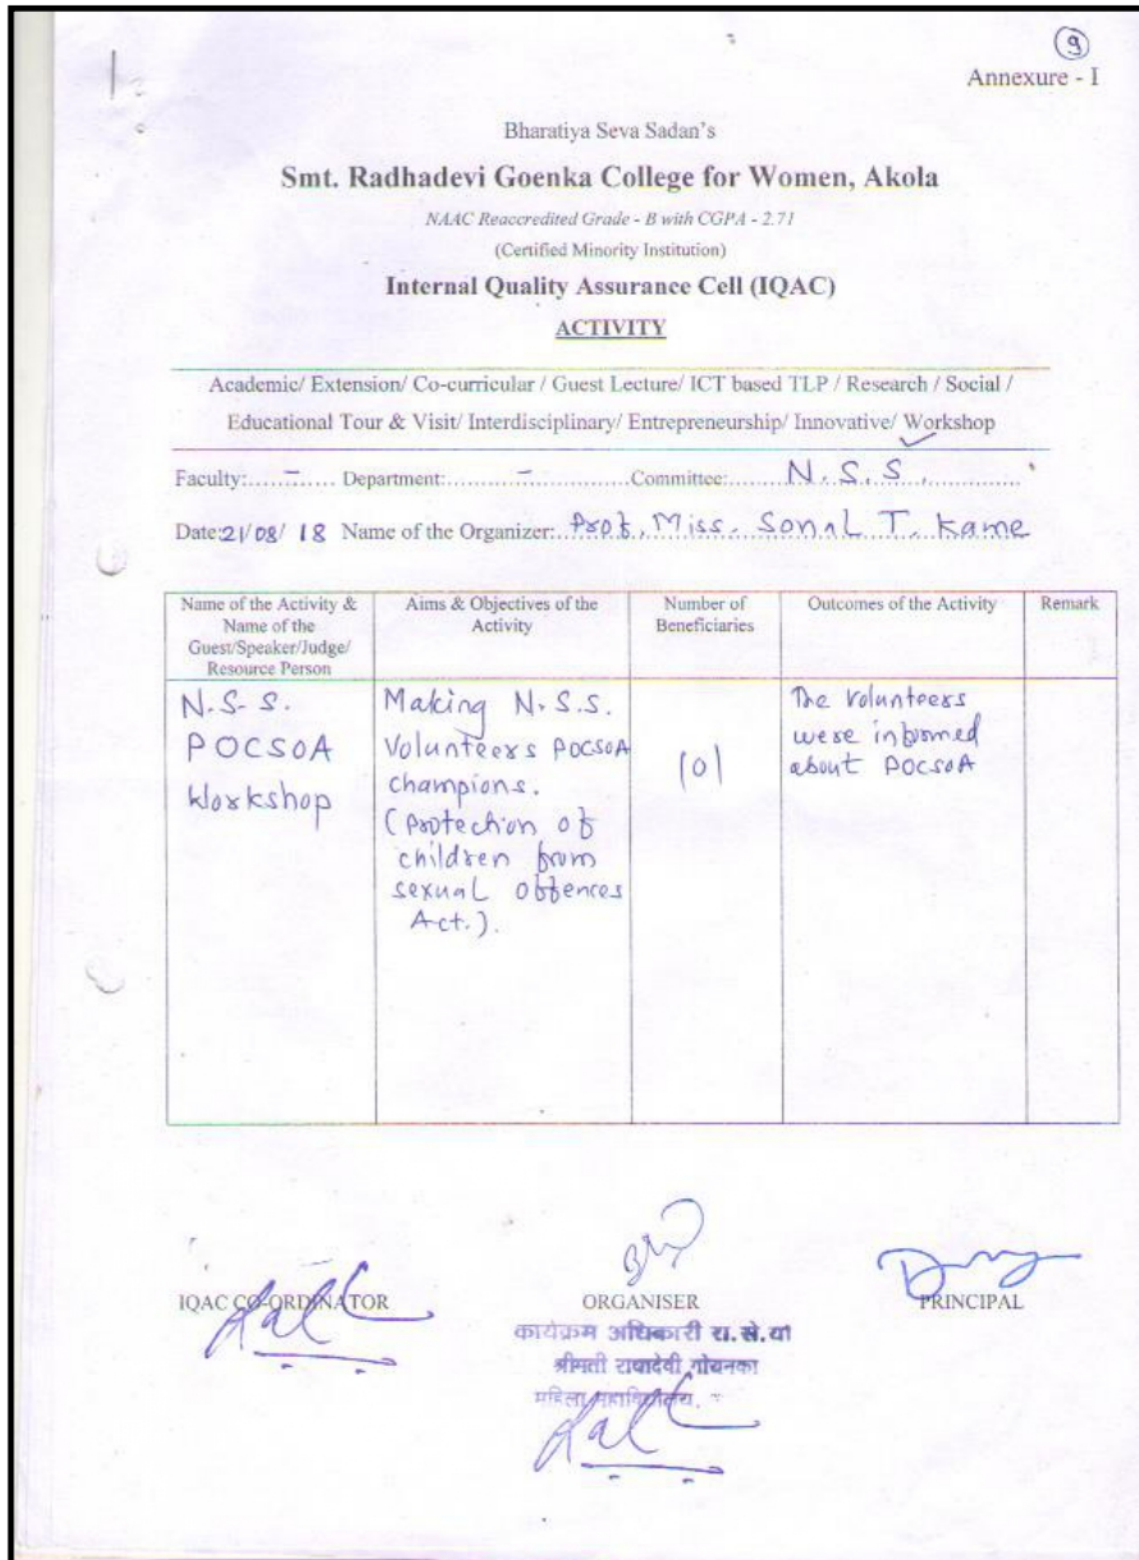 9
Annexure - I
Bharatiya Seva Sadan's
Smt. Radhadevi Goenka College for Women, Akola
NAAC Reaccredited Grade - B with CGPA - 2.71
(Certified Minority Institution)
Internal Quality Assurance Cell (IQAC)
ACTIVITY
Academic/ Extension/ Co-curricular / Guest Lecture/ ICT based TLP / Research / Social /
Educational Tour & Visit/ Interdisciplinary/ Entrepreneurship/ Innovative/ Workshop
Faculty:.....-..... Department:..........-..........Committee:....... N.S.S.............
Date:21/08/18 Name of the Organizer:..Prof. Miss. Sonal T. Kame
Name of the Activity &
Name of the
Guest/Speaker/Judge/
Resource Person
Aims & Objectives of the
Activity
Number of
Beneficiaries
Outcomes of the Activity
Remark
N.S.S.
POCSOA
Workshop
Making N.S.S.
Volunteers POCSOA
champions.
(Protection of
children from
sexual offences
Act.).
101
The Volunteers
were informed
about POCSOA
IQAC CO-ORDINATOR
ORGANISER
PRINCIPAL
कार्यक्रम अधिकारी रा.से.यो
श्रीमती राधादेवी गोयनका
महिला महाविद्यालय.